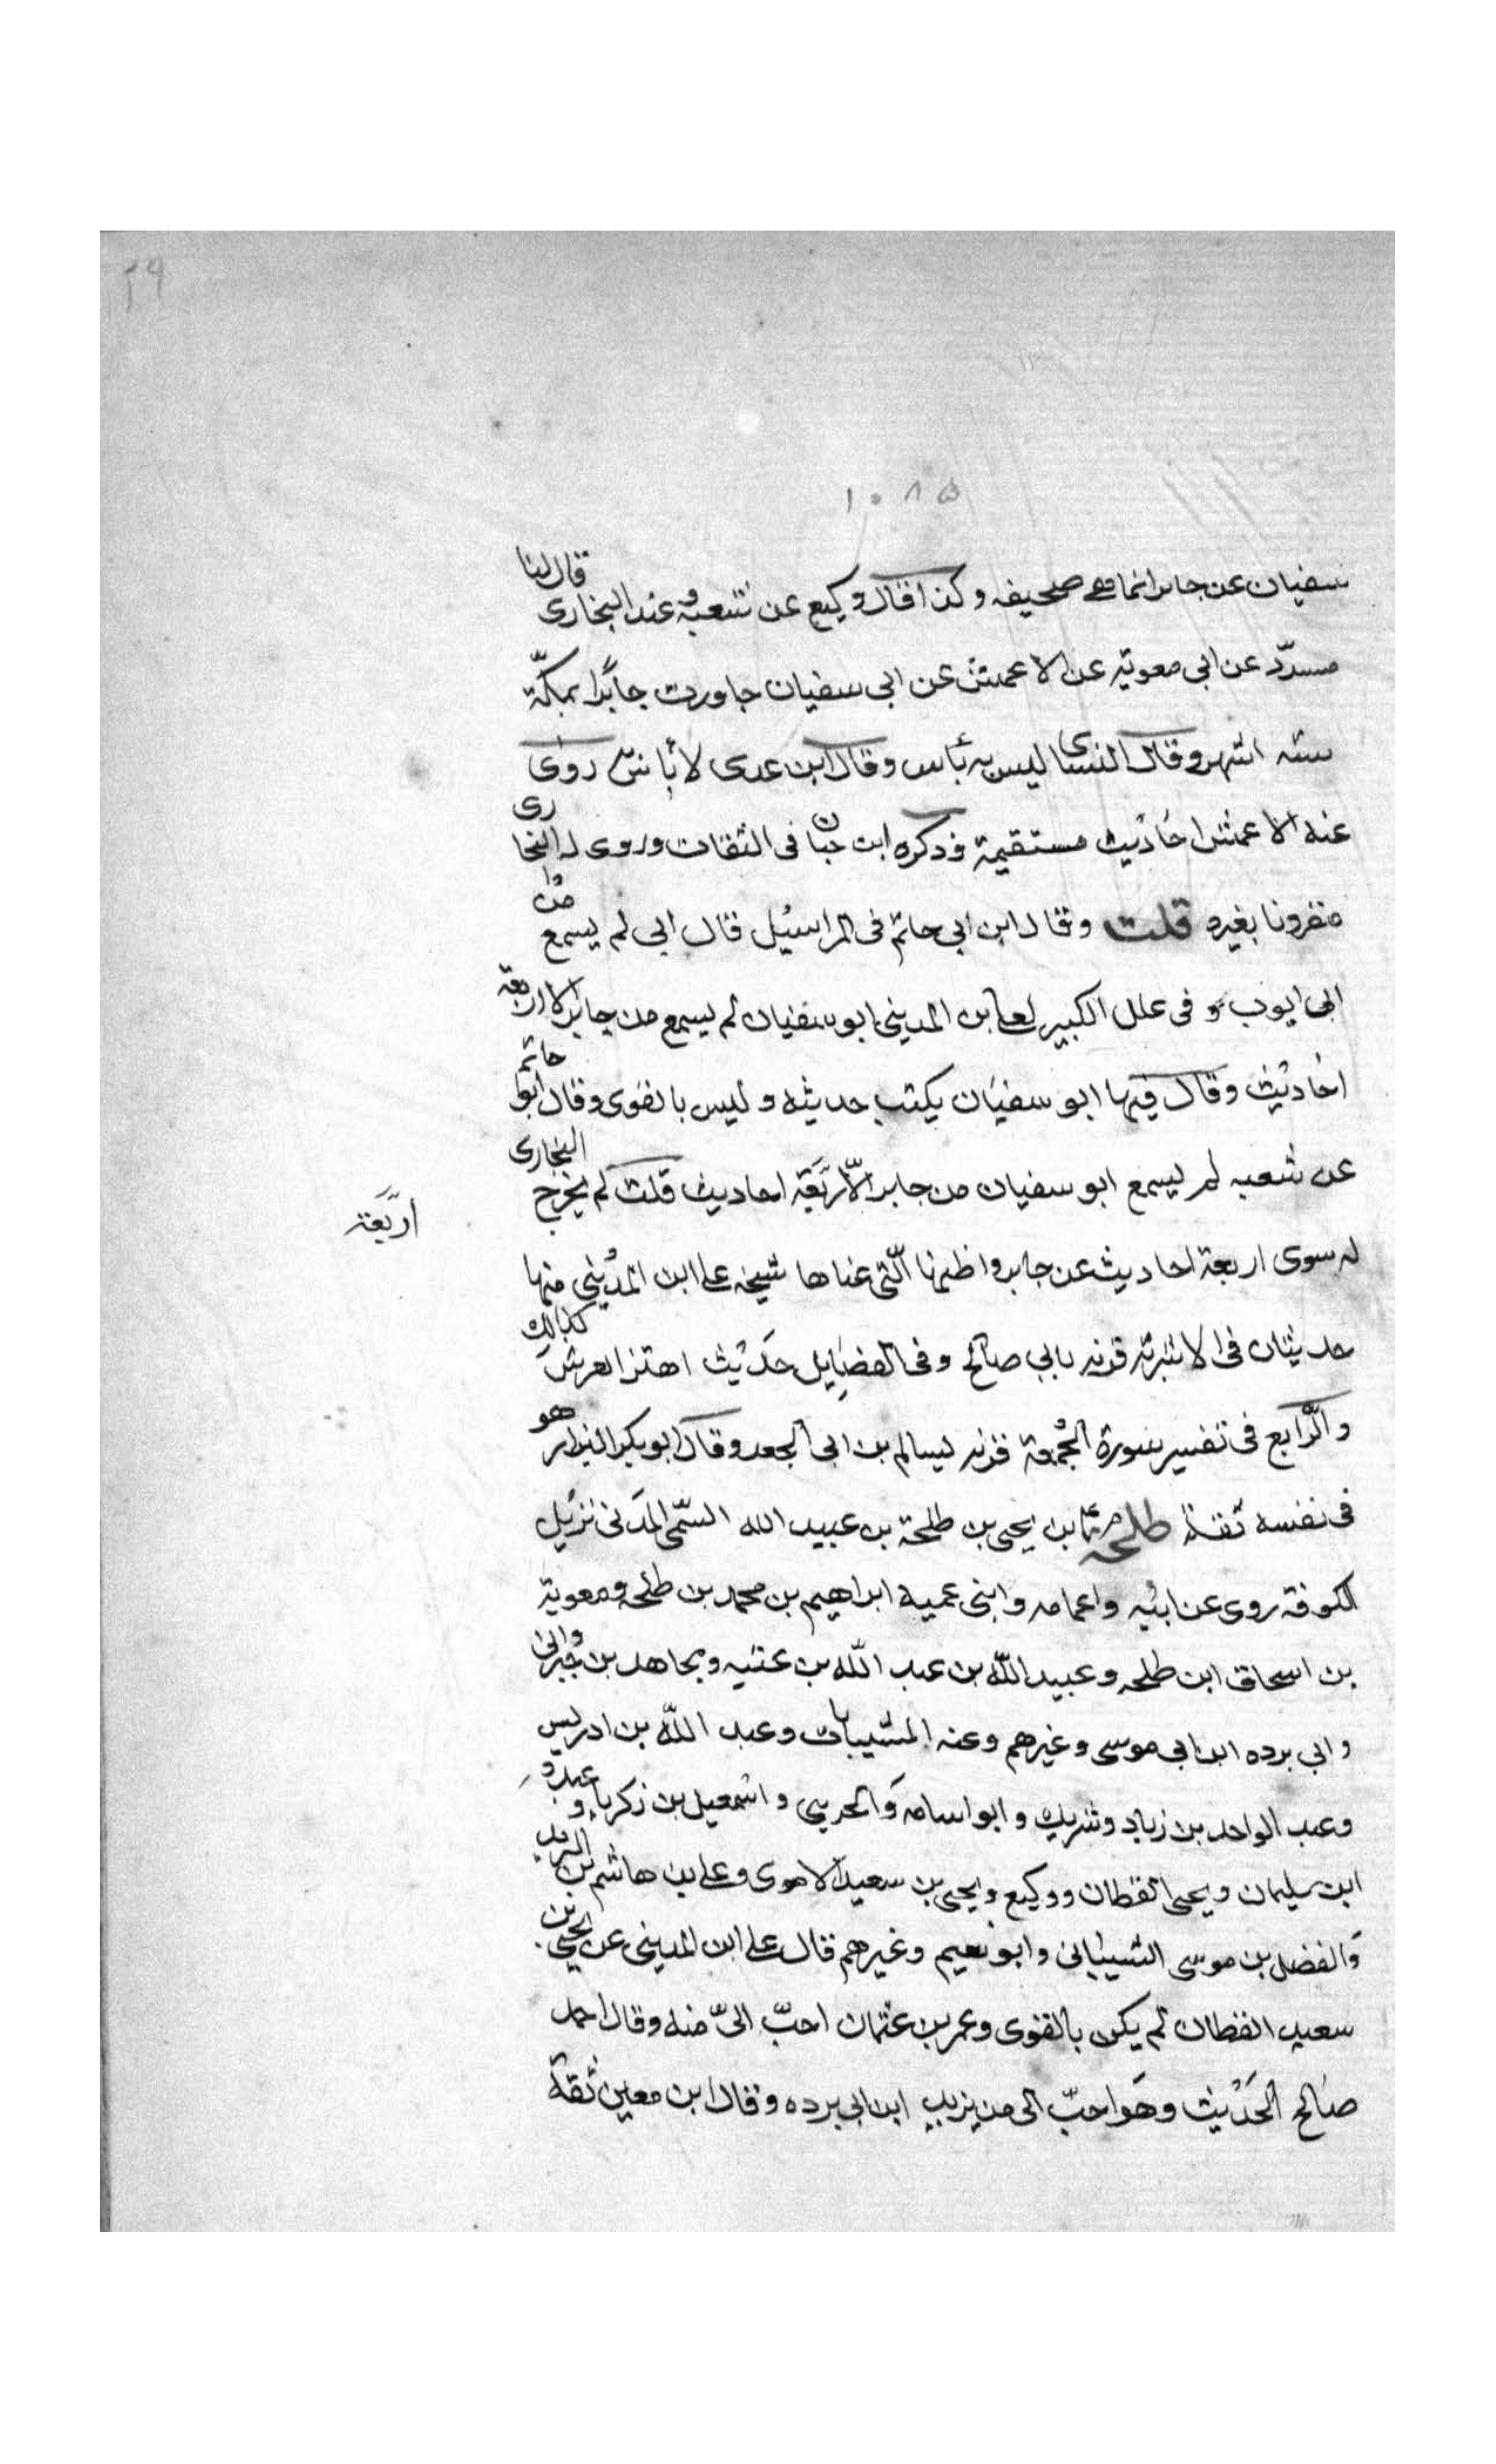 ٢٩
١٠٨٥
سفيان عن جابر انما هى صحيفه وكذا قال وكيع عن شعبه وعند البخارى قال لنا
مسدّد عن ابى معوية عن الاعمش عن ابى سفيان جاورت جابرًا بمكّة
ستة اشهر وقال النسائى ليس به بأس وقال ابن عدى لا بأس به روى
عنه الاعمش احاديث مستقيمة وذكره ابن حبان فى الثقات وروى له البخارى
مقرونا بغيره قلت وقال ابن ابى حاتم فى المراسيل قال ابى لم يسمع من
ابى ايوب و فى علل الكبير لعلى بن المدينى ابو سفيان لم يسمع من جابر الا اربعة
احاديث وقال فيها ابو سفيان يكتب حديثه وليس بالقوى وقال ابوا حاتم
عن شعبه لم يسمع ابو سفيان من جابر الّا اربَعَة احاديث قلت لم يخرج البخارى
اربَّعة
له سوى اربعة احاديث عن جابر واظنها الّتى عناها شيخه على ابن المدينى منها
حديثان فى الاشربة قرنه بابى صالح وفى الفضايل حديث اهتز العرش كذالك
والرّابع فى تفسير سورة الجُمعة قرنه لسالم بن ابى الجعد وقال ابو بكر البزار هو
فى نفسه ثقة طلحه بن يحيى بن طلحة بن عبيد الله التيّمى المدنى نزيل
الكوفة روى عن ابيه واعمامه وابنى عميه ابراهيم بن محمد بن طلحه ومعوية
بن اسحاق ابن طلحه وعبيد اللّه بن عبد اللّه بن عتبه ومجاهد بن جبر
وابى برده ابن ابى موسى وغيرهم وعنه السفيانان وعبد اللّه بن ادريس
وعبد الواحد بن زياد وشريك وابو اسامه وَالحريبى واسمعيل بن زكريا وعبده
ابن سليمان ويحيى القطان ووكيع ويحيى بن سعيد الاموى وعلى بن هاشم بن البريد
وَالفضل بن موسى الشيبانى وابو نعيم وغيرهم قال على ابن المدينى عن يحيى بن
سعيد القطان لم يكن بالقوى وعمر بن عثمان احبّ الىّ منه وقال احمد
صالح الحَديث وهَو احبّ الى من يزيد ابن ابى برده وقال ابن معين ثقة